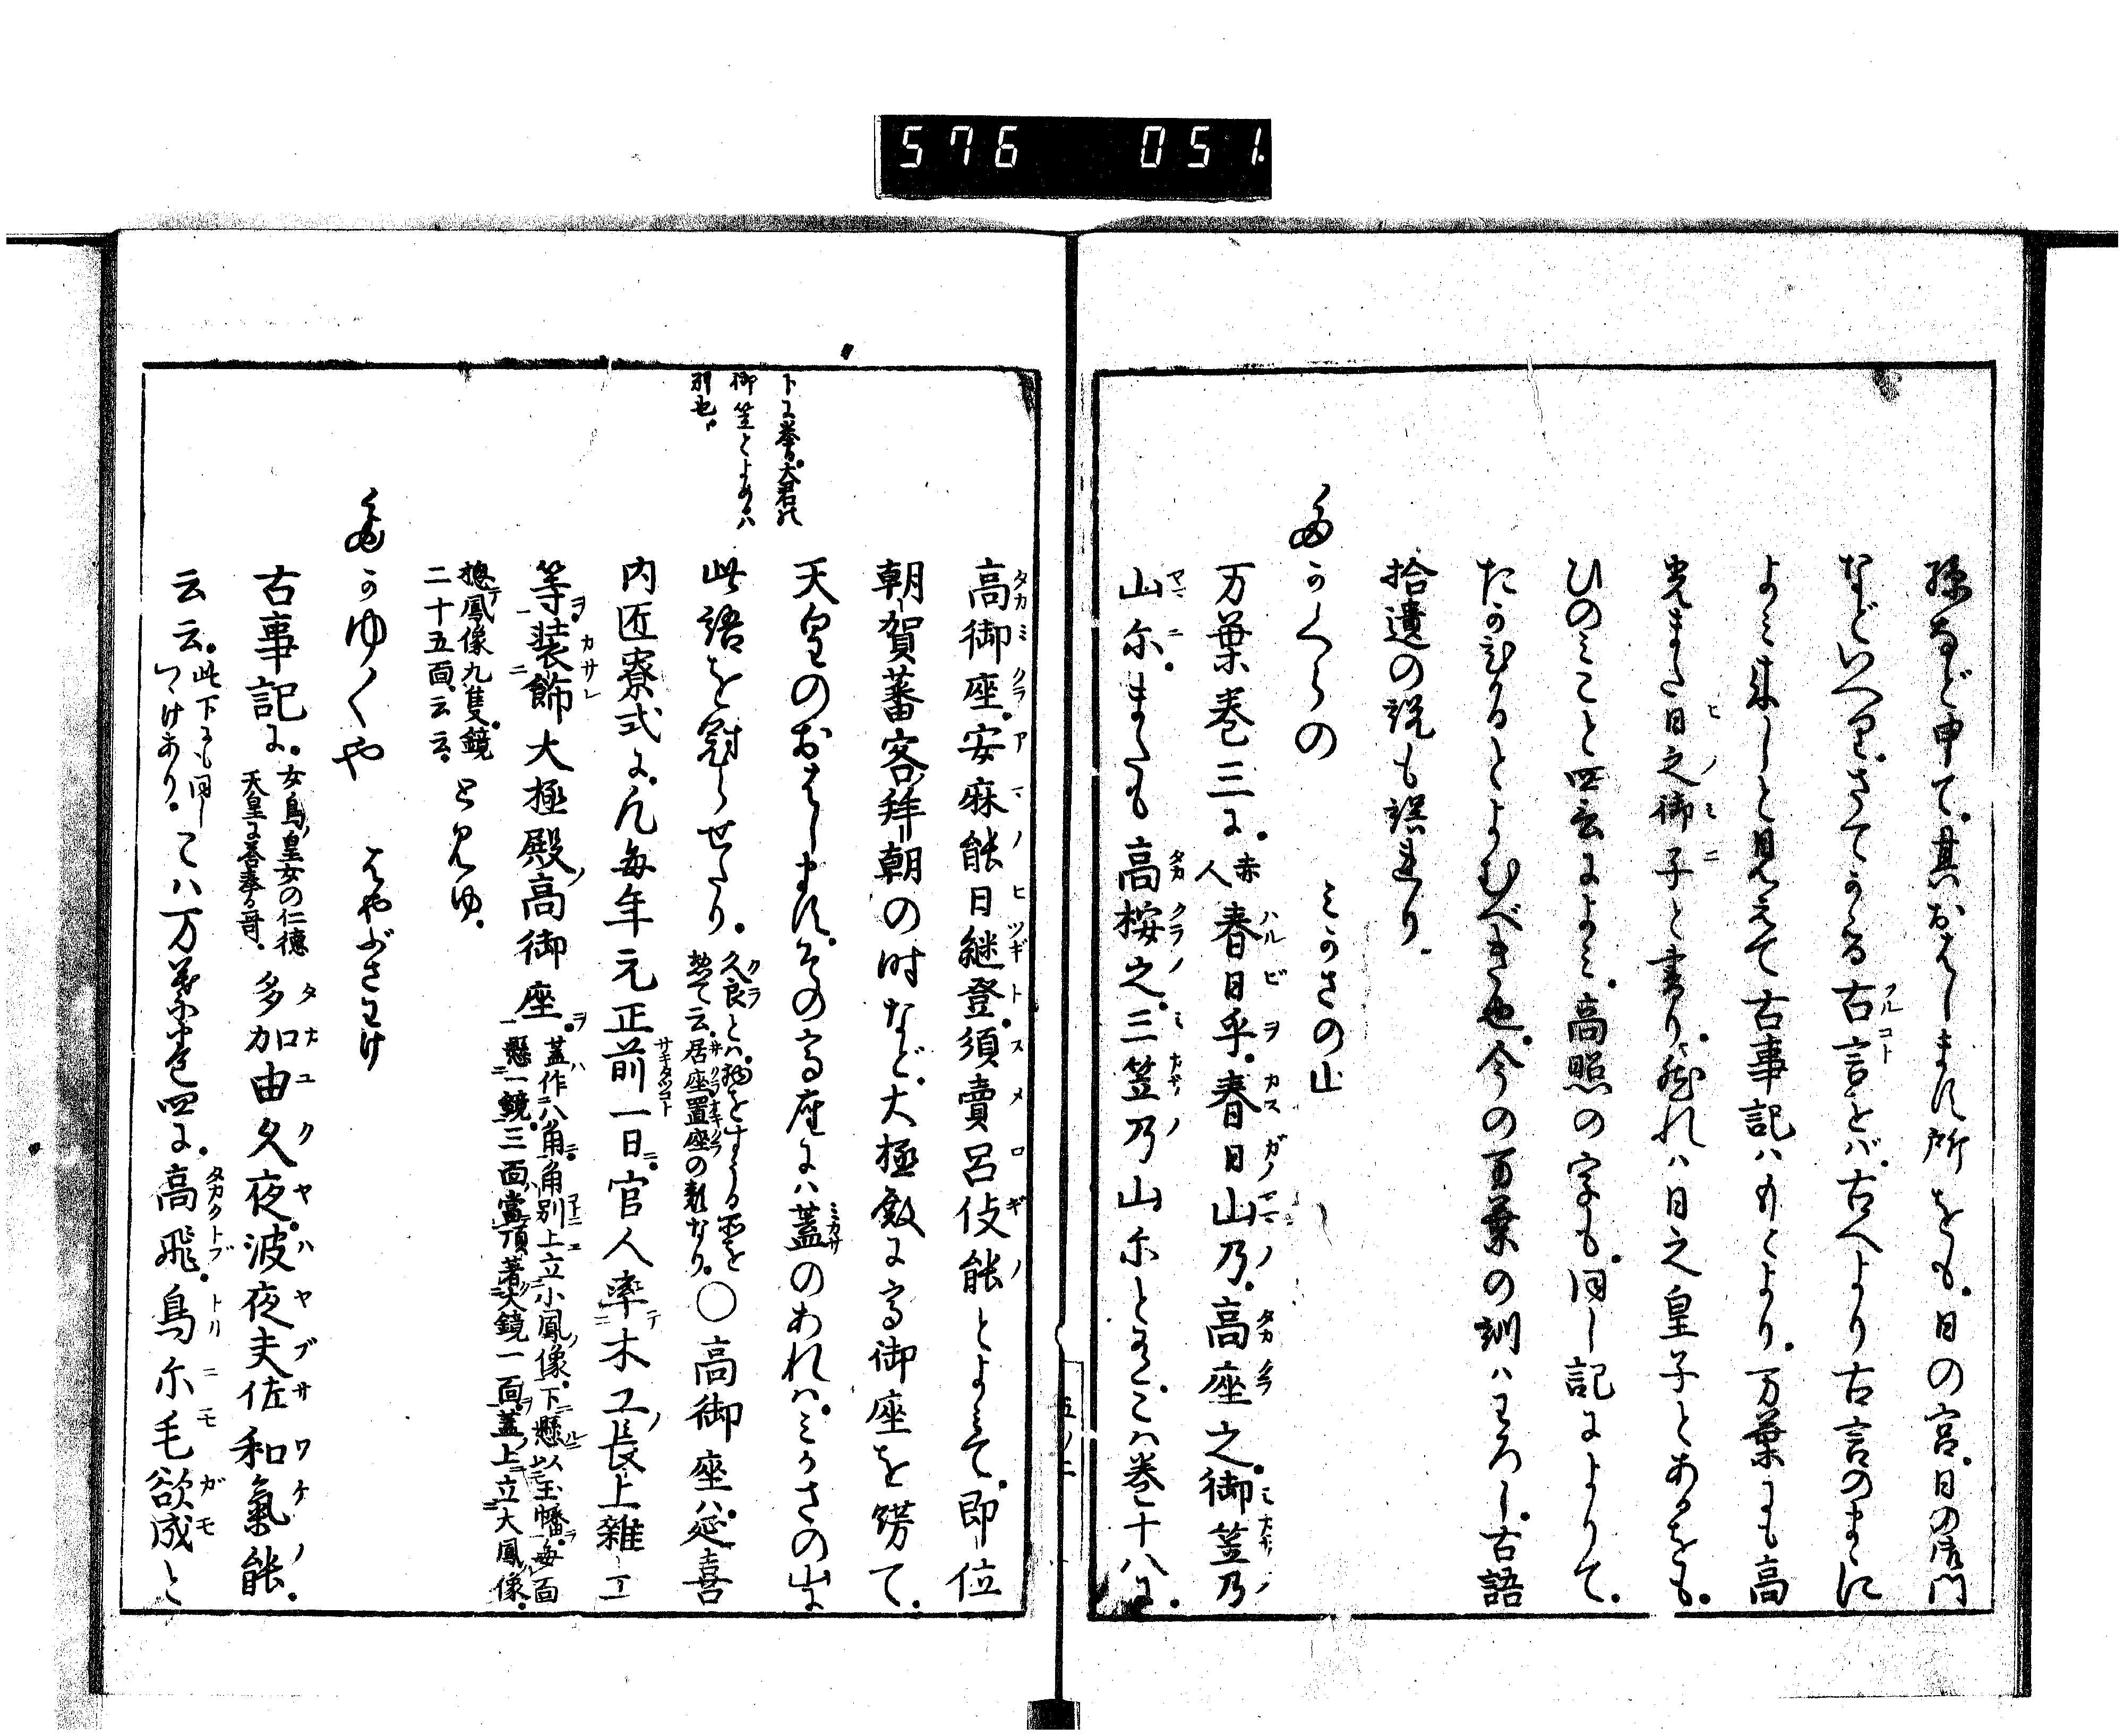 576 051.
孫など申て。其おはしまス所をも。日の宮。日の御門
などいへり。さてかゝる古言をバ。古へより古言のまゝに
よみ来しと見えて古事記ハもとより。万葉にも高
光また日之御子と書り。然れハ日之皇子とあるをも。
ひのみこと四言によみ。高照の字も。同し記によりて。
たかひかるとよむべき也。今の万葉の訓ハわろし。古語
拾遺の説も誤れり。
たかくらの みかさの山
万葉巻三に。赤人春日乎。春日山乃。高座之。御笠乃
山尓。またも高桉之。三笠乃山尓とあり。こハ巻十八に。
高御座。安麻能日継登。須賣呂伎能とよみて。即位
朝賀蕃客拜朝の時など。大極殿に高御座を餝て。
天皇のおはしまス。その高座にハ蓋のあれハ。みかさの山に
此語を冠らせたり。
久良とは。物をすうる所を
惣て云。居座置座の類なり。
○高御座ハ。延喜
内匠寮式に。凡毎年元正前一日。官人率木工長上雑工
等装飾大極殿高御座。
蓋作八角。角別上立小鳳像。下懸以玉幡。毎面
懸一鏡三面。當頂著大鏡一面。蓋上立大鳳像。
惣鳳像九隻。鏡
二十五面。云云。
と見ゆ。
下に挙る。大君の
御笠とよめるハ
別也。
たかゆくや はやぶさわけ
古事記に。
女鳥皇女の仁徳
天皇に答奉る哥。
多加由久夜。波夜夫佐和氣能。
云云。
此下にも同し
つゝけあり。
こハ万葉巻四に。高飛。鳥尓毛欲成と